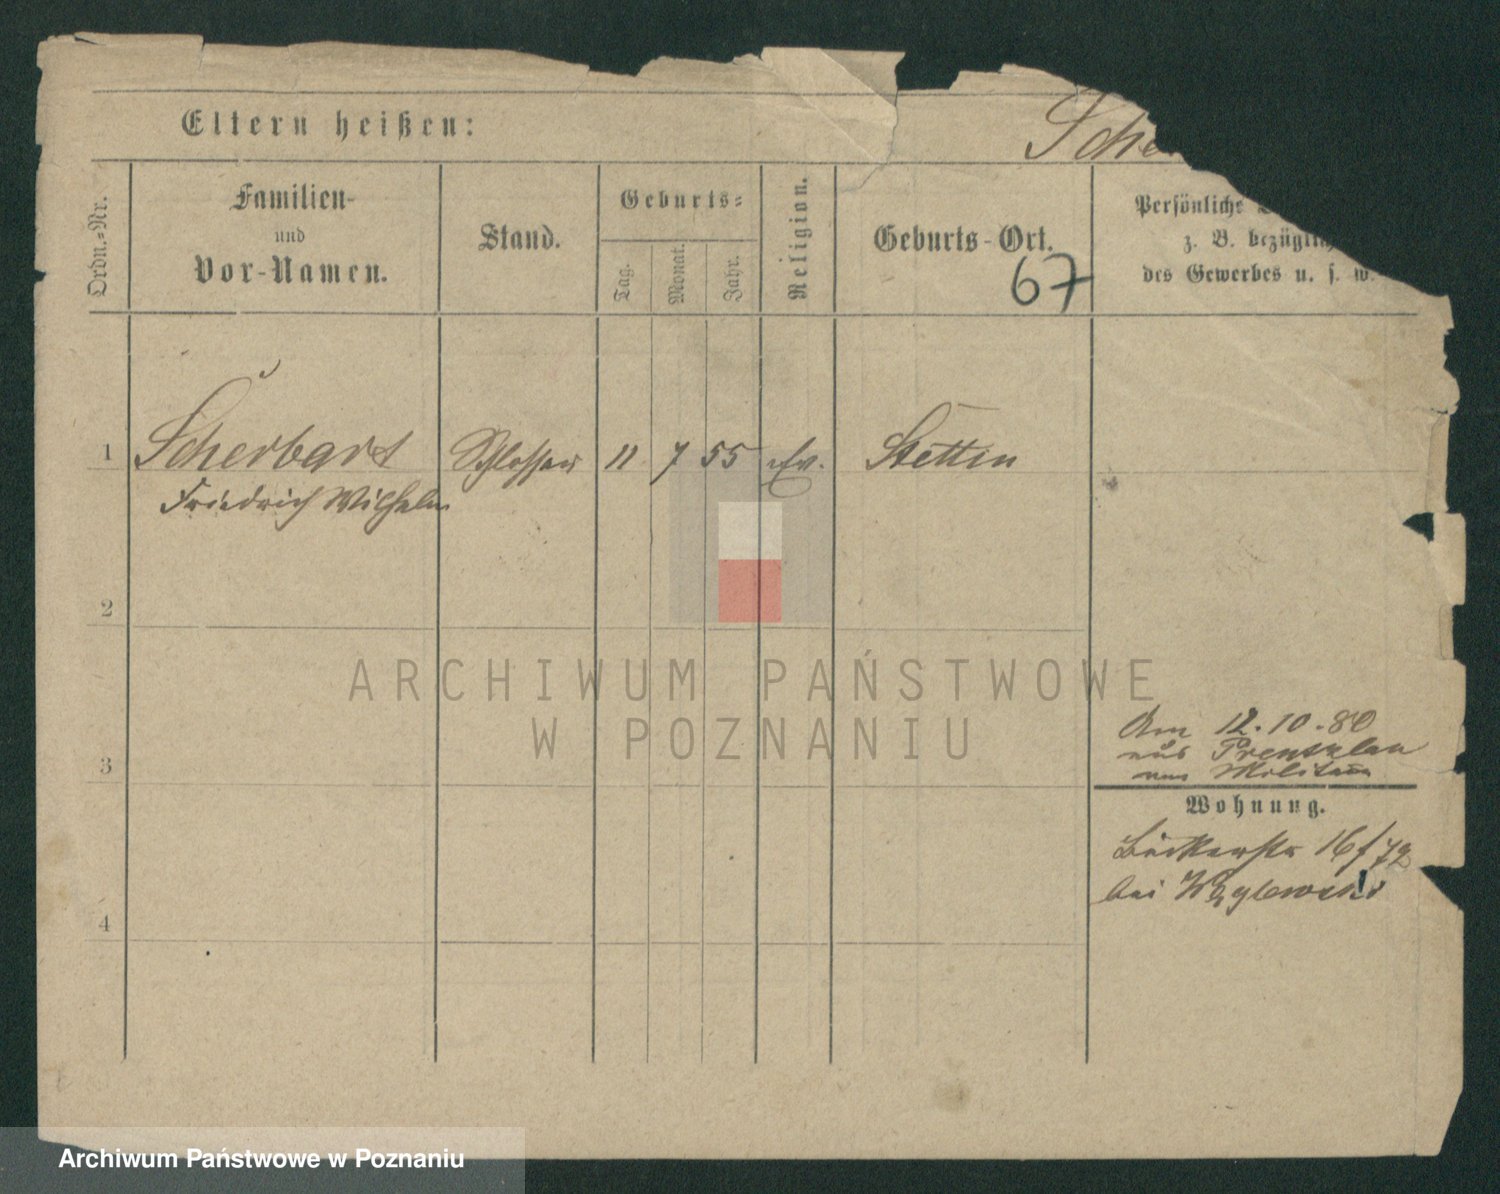 Eltern heißen:
Sche
Ordn.-Nr.
Familien-
und
Vor-Namen.
Stand.
Geburts-
Tag.
Monat.
Jahr.
Religion.
Geburts-Ort.
67
Persönliche
z. B. bezüglich
des Gewerbes u. s. w.
1 Scherbart Schlosser 11 7 55 Ev. Stettin
Friedrich Wilhelm
2
3
4
Am 12.10.80
aus Prenzlau
vom Militair
Wohnung.
Bäckerstr 16/72
bei Węglewski
ARCHIWUM PAŃSTWOWE
W POZNANIU
Archiwum Państwowe w Poznaniu